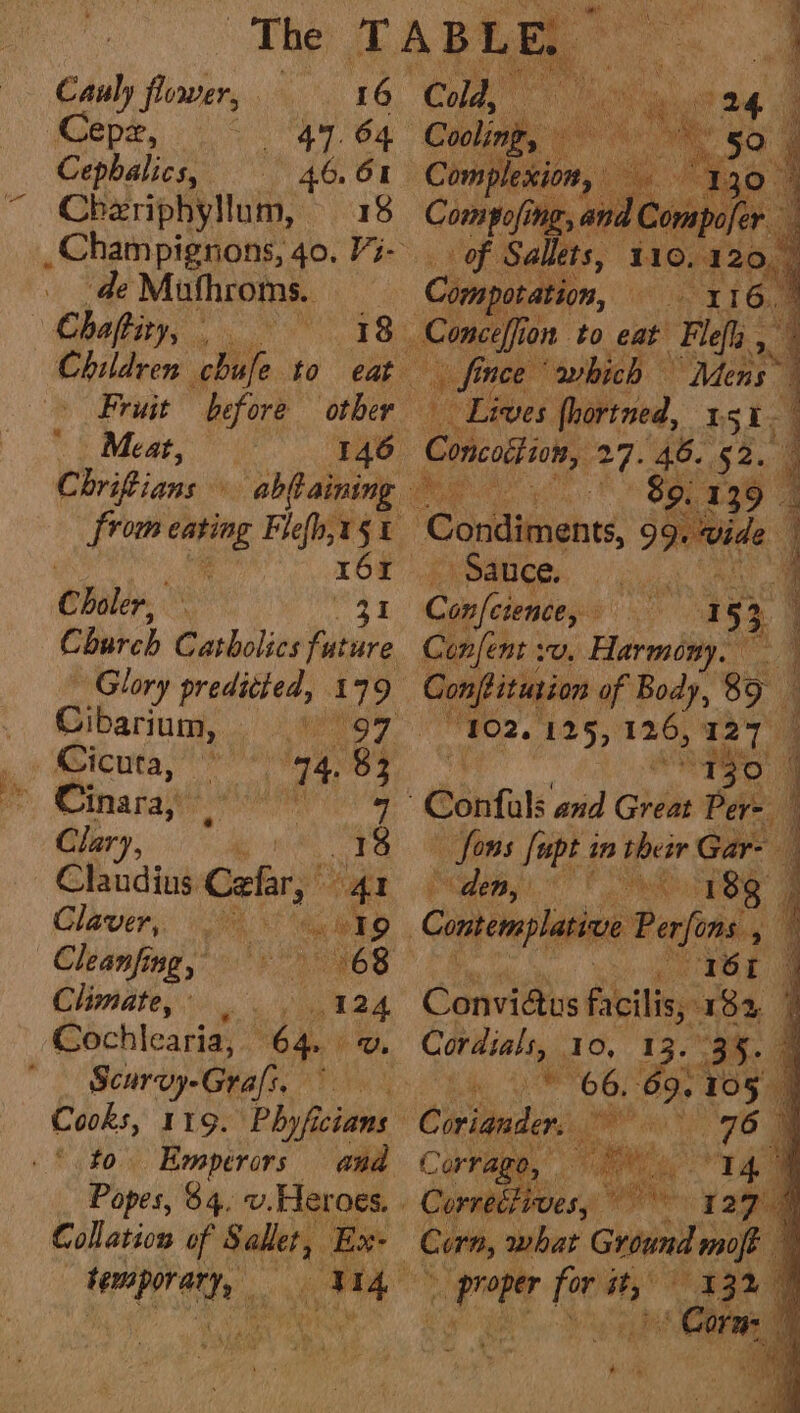 The TABLE.
Cauly flower, 16
Cepæ, 47. 64
Cephalics, 46. 61
Chæriphyllum, 18
Champignons, 40. Vi-
de Muſhroms.
Chaſtity, 18
Children chuſe to eat
Fruit before other
Meat, 146
Chriſtians abſtaining
from eating Fleſh, 151
161
Choler, 31
Church Catholics future
Glory predicted, 179
Cibarium, 97
Cicuta, 74. 83
Cinara, 7
Clary, 18
Claudius Cæſar, 41
Claver, 19
Cleanſing, 68
Climate, 124
Cochlearia, 64. v.
Scurvy-Graſs.
Cooks, 119. Phyſicians
to Emperors and
Popes, 84. v. Heroes.
Collation of Sallet, Ex-
temporary, 114
Cold, 24
Cooling, 50
Complexion, 130
Compoſing, and Compoſer
of Sallets, 110. 120
Compotation, 116
Conceſſion to eat Fleſh,
ſince which Mens
Lives ſhortned, 151
Concoction, 27. 46. 52.
89. 139
Condiments, 99. vide
Sauce.
Conſcience, 153
Conſent v. Harmony.
Conſtitution of Body, 89
102. 125, 126, 127
130
Conſuls and Great Per-
ſons ſupt in their Gar-
den, 189
Contemplative Perſons,
161
Convictus facilis, 182
Cordials, 10, 13. 35.
66. 69. 105
Coriander. 76
Corrago, 14
Correctives, 127
Corn, what Ground moſt
proper for it, 132
Corn-